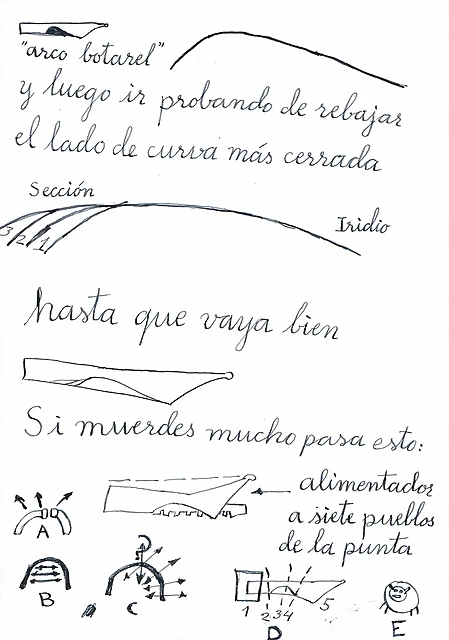 "arco botarel"
y luego ir probando de rebajar
el lado de curva más cerrada
Sección
3 2 1
Iridio
hasta que vaya bien
Si muerdes mucho pasa esto:
alimentador
a siete pueblos
de la punta
A
B
C
1 2 3 4 5
D
E